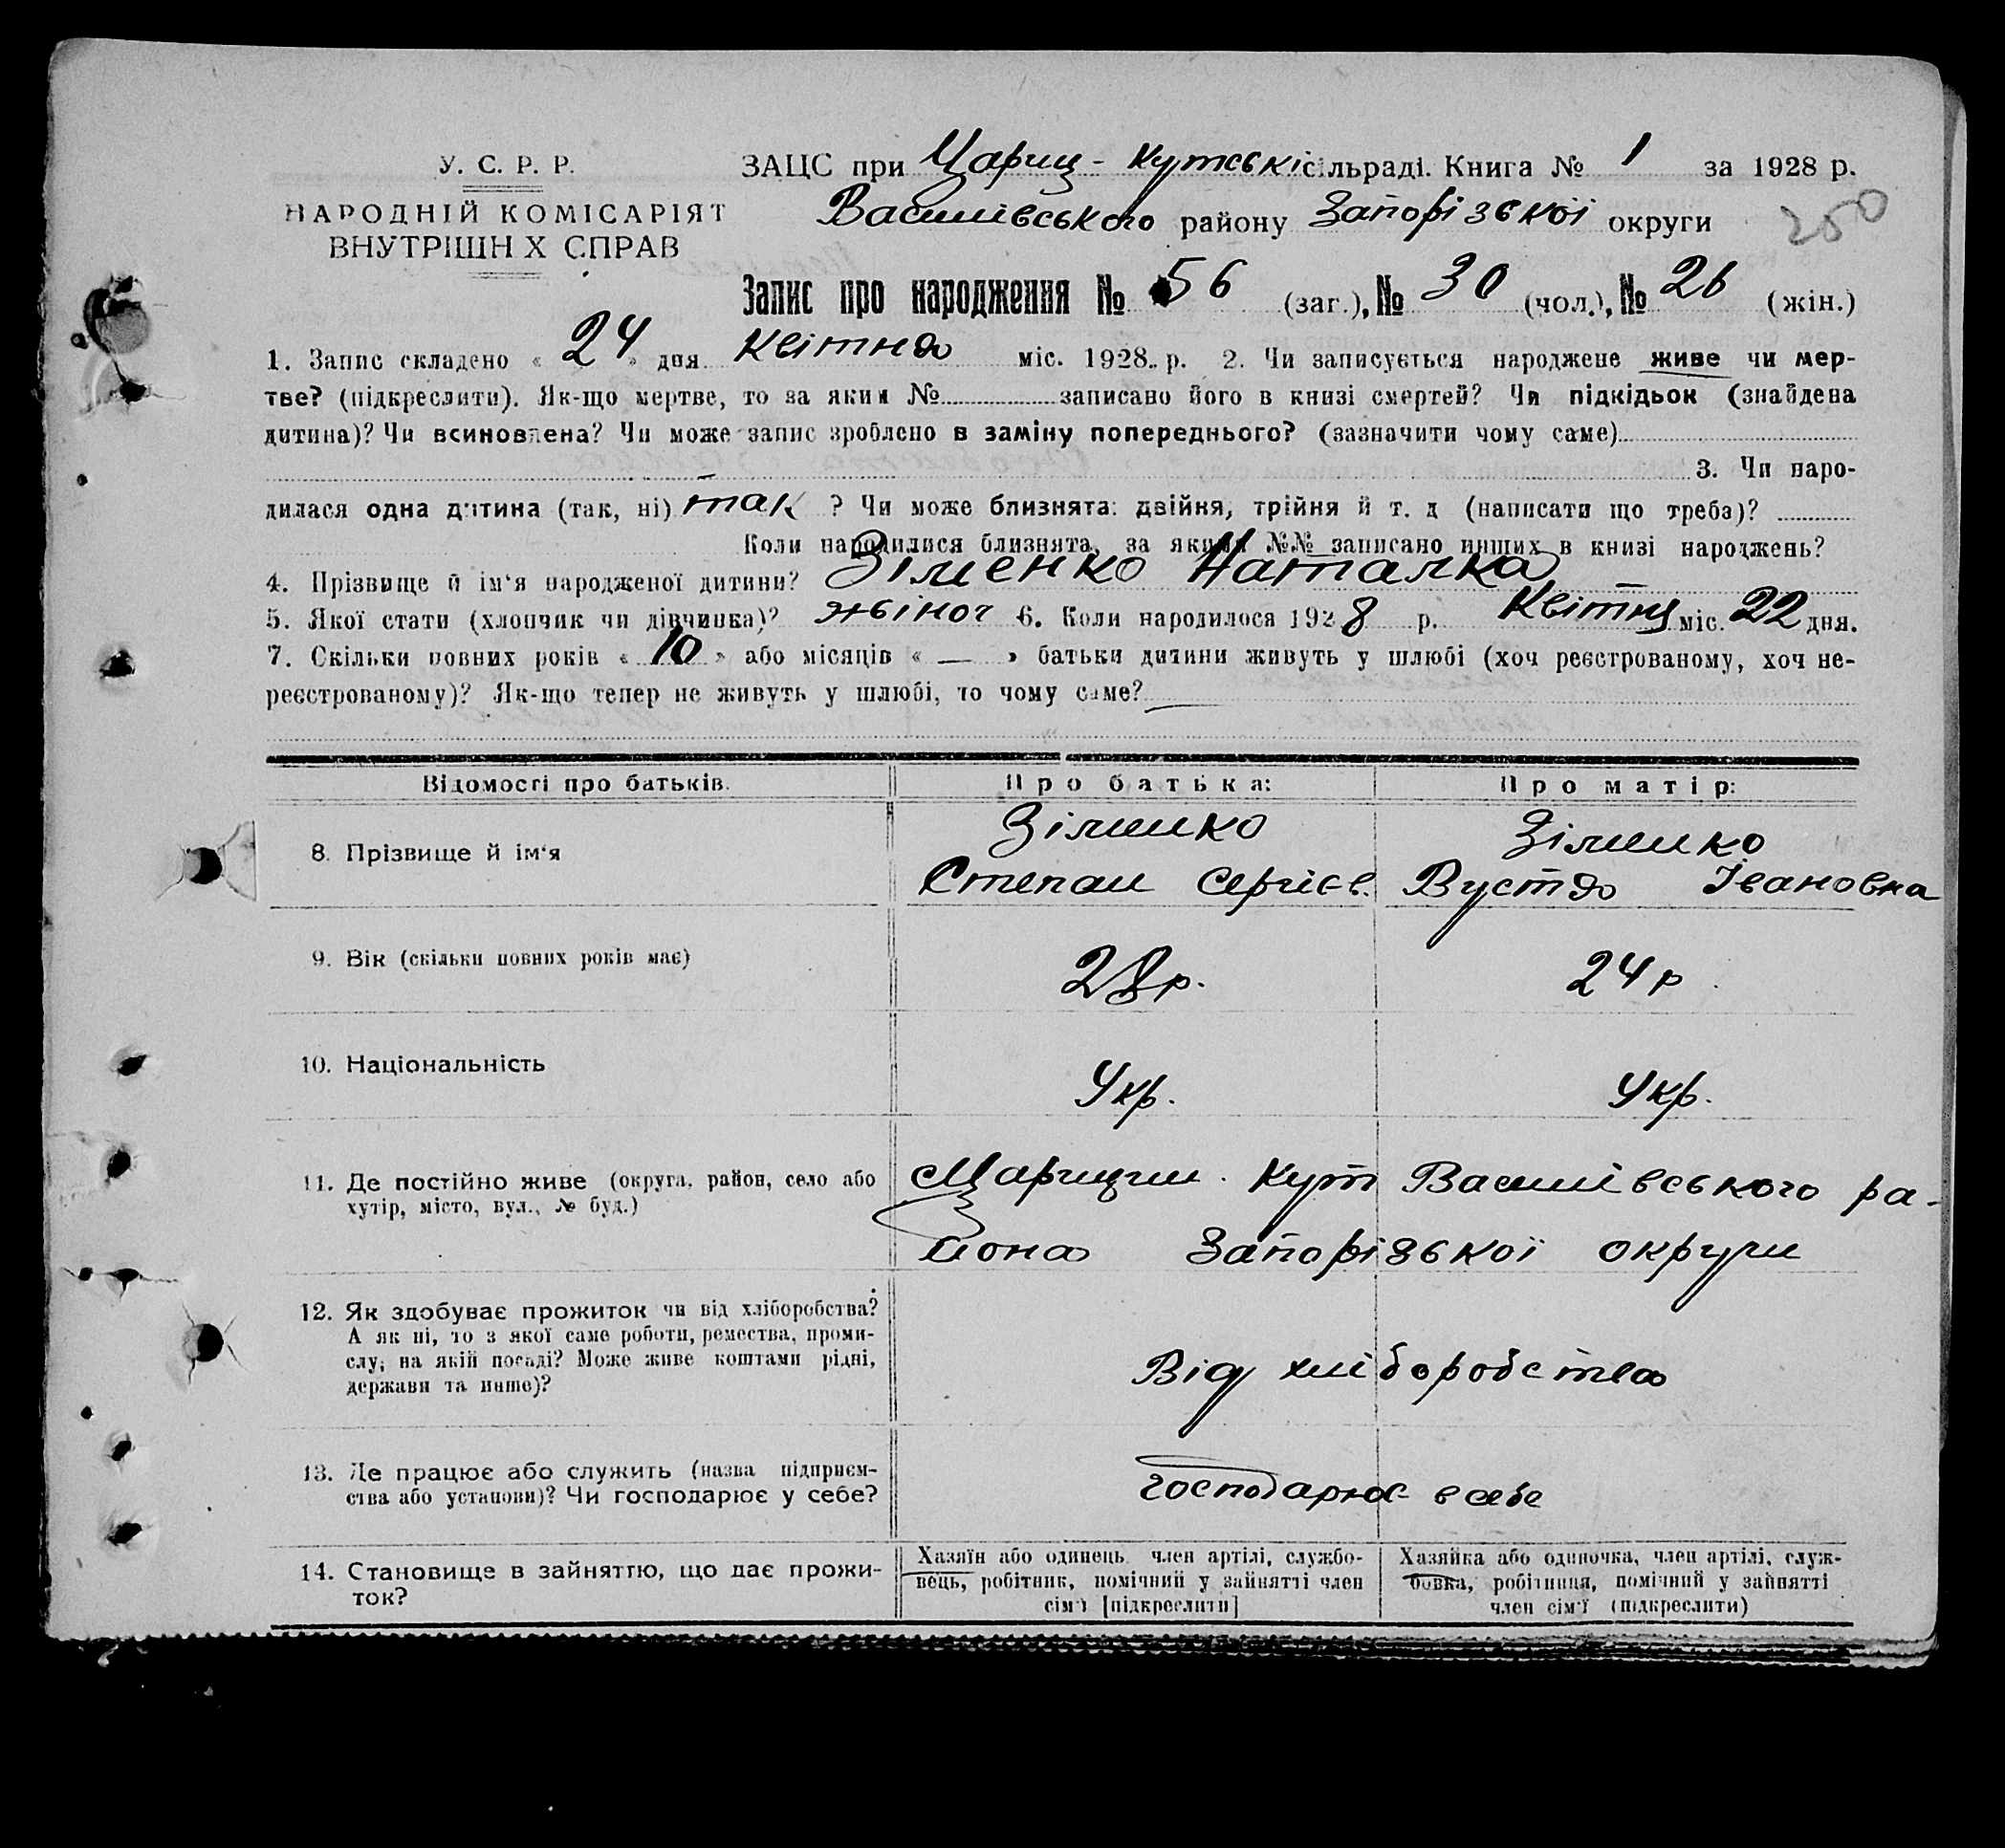 У. С. Р. Р.
НАРОДНІЙ КОМІСАРІЯТ
ВНУТРІШН Х СПРАВ
ЗАЦС при Цариц-Кутській сільраді. Книга № 1 за 1928 р.
Василівського району Запорізької округи
250
Запис про народження № 56 (заг.), № 30 (чол.), № 26 (жін.)
1. Запис складено « 24 » дня Квітня міс. 1928 р. 2. Чи записується народжене живе чи мер-
тве? (підкреслити). Як-що мертве, то за яким № записано його в книзі смертей? Чи підкідьок (знайдена
дитина)? Чи всиновлена? Чи може запис зроблено в заміну попереднього? (зазначити чому саме)
3. Чи наро-
дилася одна дитина (так, ні) так ? Чи може близнята: двійня, трійня й т. д (написати що треба)?
Коли народилися близнята, за якими №№ записано инших в книзі народжень?
4. Прізвище й ім'я народженої дитини? Зіменко Наталка
5. Якої стати (хлопчик чи дівчинка)? жіноч 6. Коли народилося 1928 р. Квітня міс. 22 дня.
7. Скільки повних років « 10 » або місяців « — » батьки дитини живуть у шлюбі (хоч реєстрованому, хоч не-
реєстрованому)? Як-що тепер не живуть у шлюбі, то чому саме?
Відомості про батьків. Про батька: Про матір:
8. Прізвище й ім'я
Зіменко
Степан Сергієв.
Зіменко
Вустя Івановна
9. Вік (скільки повних років має) 28 р. 24 р
10. Національність Укр. Укр.
11. Де постійно живе (округа, район, село або
хутір, місто, вул., № буд.)
Царицин. Кут Василівського ра-
йона Запорізької округи
12. Як здобуває прожиток чи від хліборобства?
А як ні, то з якої саме роботи, ремества, проми-
слу; на якій посаді? Може живе коштами рідні,
держави та инше)?
Від хліборобства
13. Де працює або служить (назва підприєм-
ства або установи)? Чи господарює у себе?
господарює в себе
14. Становище в зайняттю, що дає прожи-
ток?
Хазяїн або одинець, член артілі, службо-
вець, робітник, помічний у зайнятті член
сім'ї [підкреслити]
Хазяйка або одиночка, член артілі, служ-
бовка, робітниця, помічний у зайнятті
член сім'ї (підкреслити)